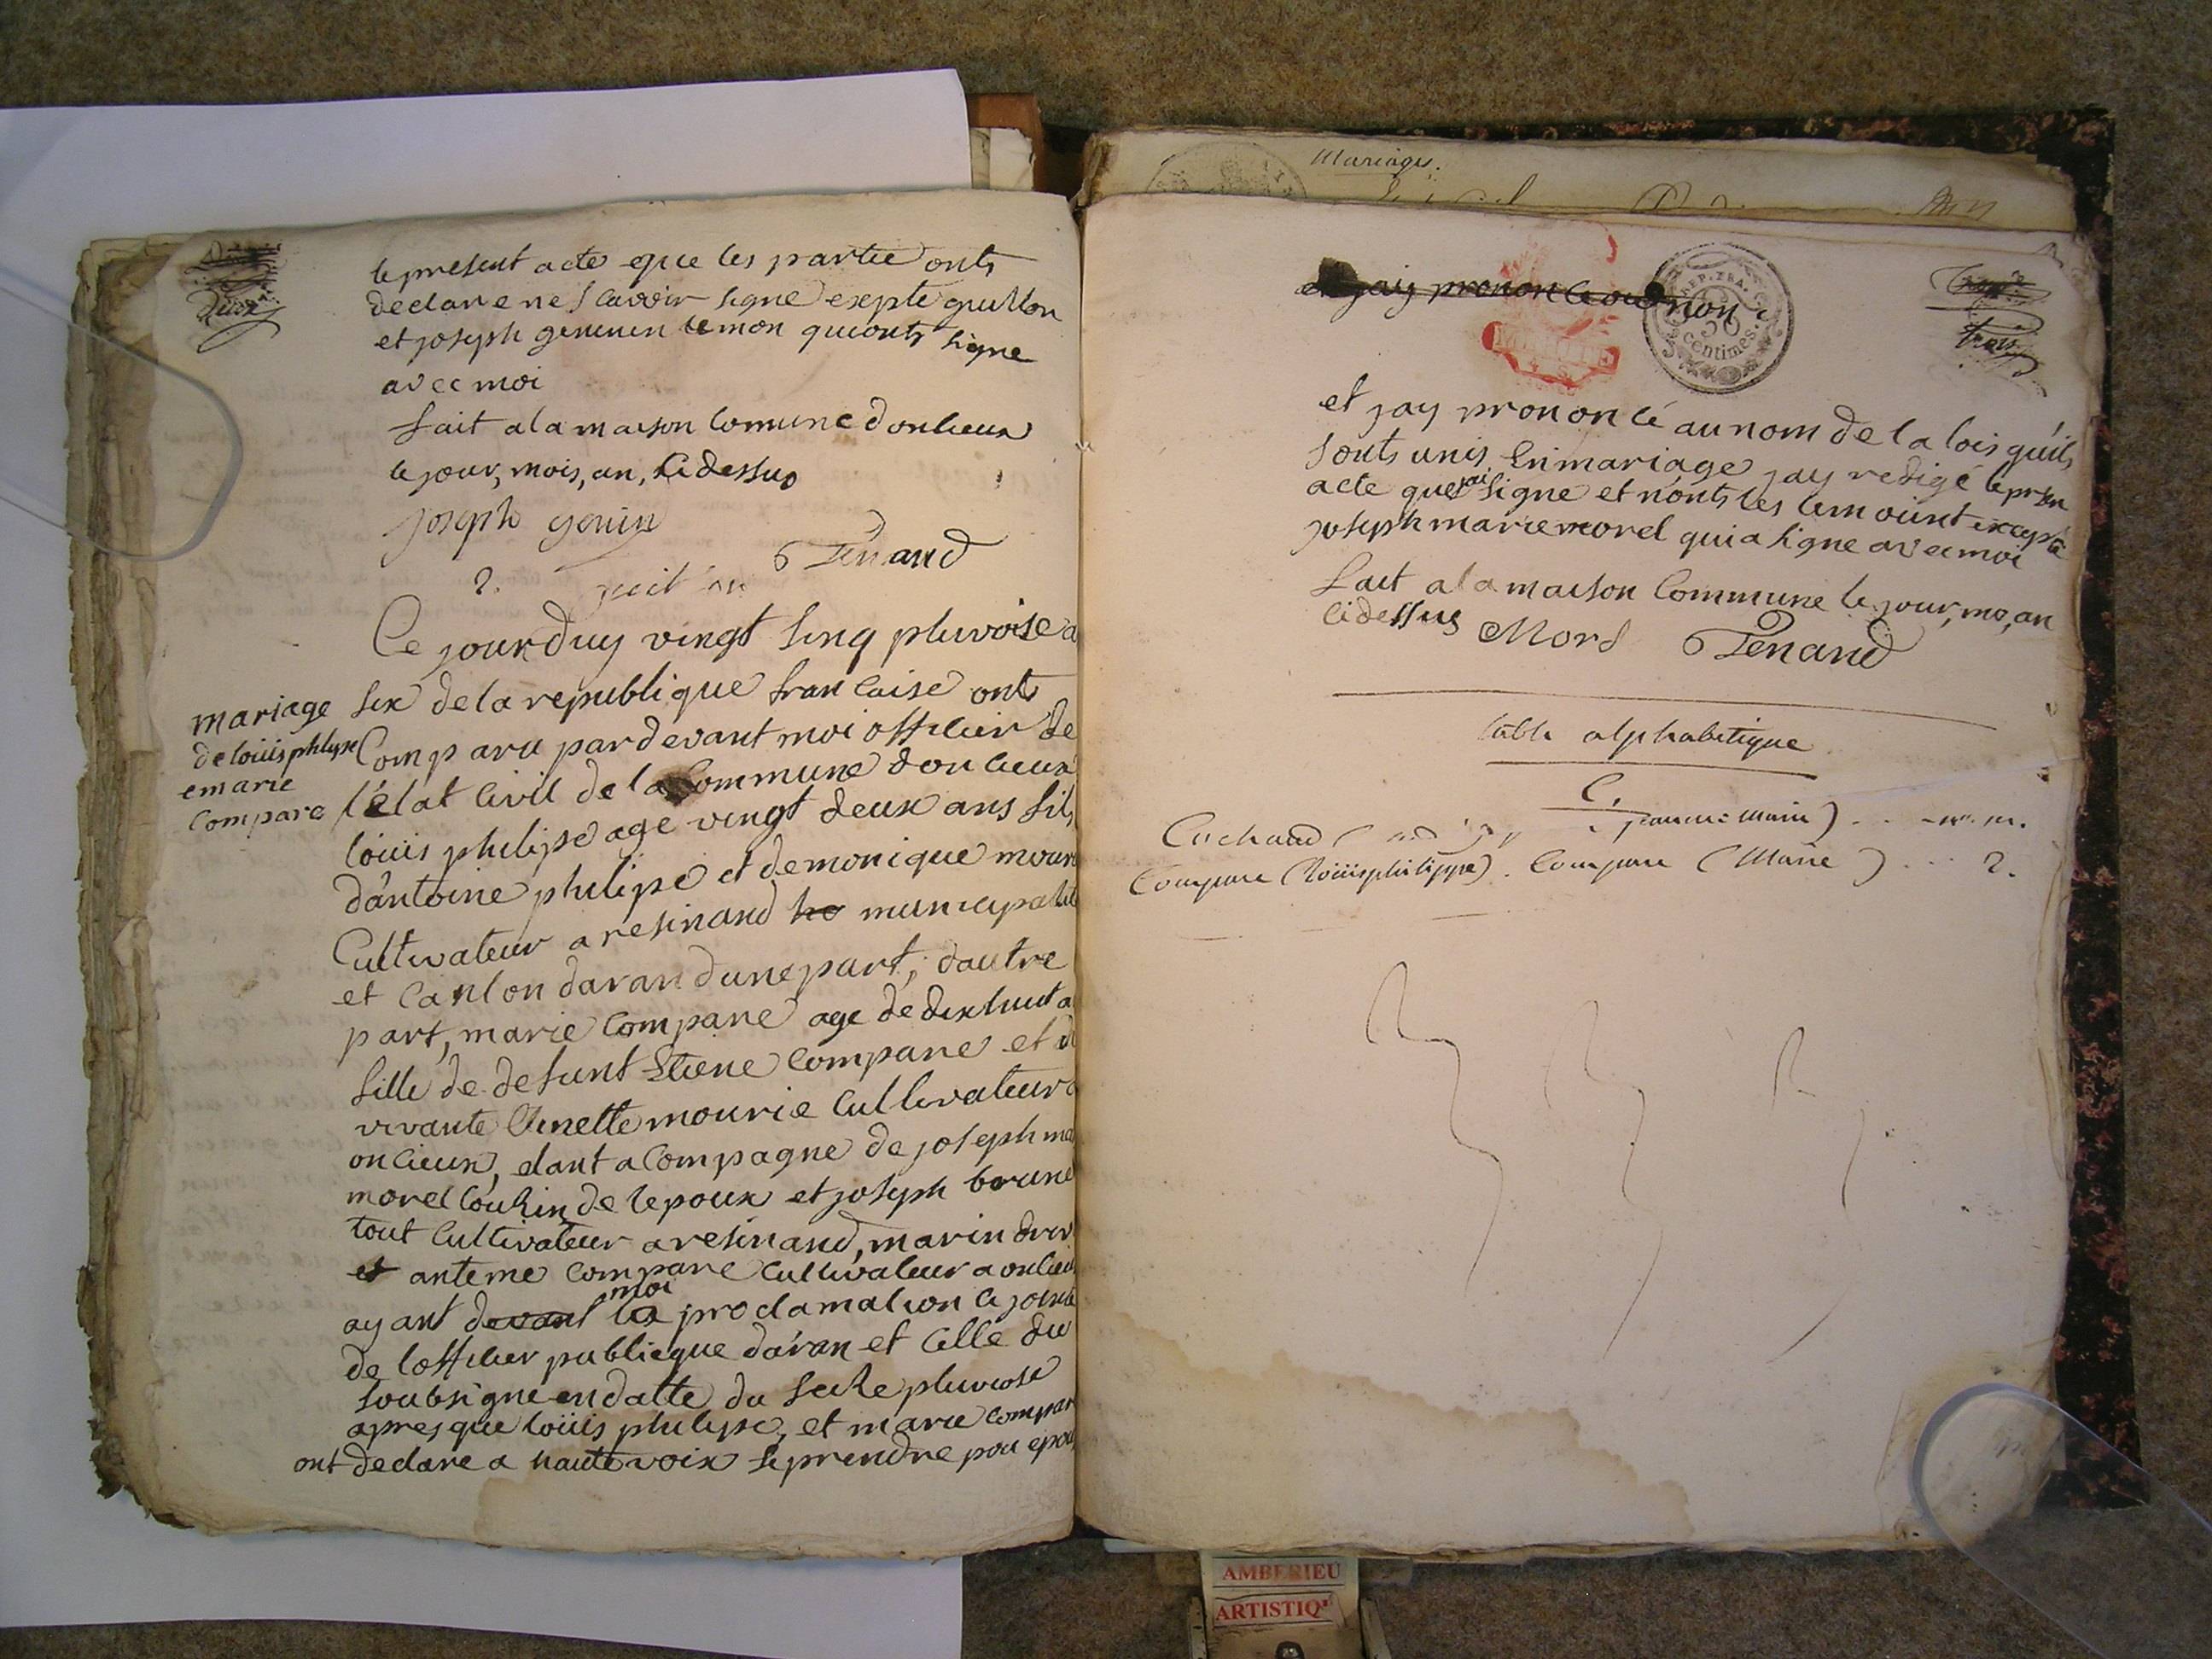 deux
le present acte que les partie onts
declare ne scavoir signe exepte guillon
et joseph genin temon qui onts signe
avec moi
fait a la maison comune d'onlieux
le jour, mois, an, ci dessus
joseph genin
Tenand
2.
Ce jourduy vingt sinq pluvoise a
six de la republique francaise onts
mariage
de loüis philipe
e marie
compare
comparu pardevant moi officier de
l'état civil de la commune d'oncieux
loüis philipe age vingt deux ans fils
d'antoine philipe et de monique mour
cultivateur a resinand municipalité
et canton daran dune part, dautre
part, marie compare age de dixhuit a
fille de defunt Etiene compare et d
vivante mourie cultivateur a
oncieux, etant acompagne de joseph ma
morel couhin de lepoux et joseph brune
tout cultivateur a resinand, marin
et anteme compare cultivateur a oncieu
moi
ayant devant la proclamation ci jointe
de lofficier publicque d'aran et celle du
soubsigne en datte du seize pluviose
apres que loüis philipe, et marie compar
ont declare a haute voix se prendre pou epou
Mariages.
et jaij prononce au nom
REP. FRA.
50
centimes.
trois
et jay prononcé au nom de la lois qu'ils
sonts unis en mariage jay redigé le presen
acte que jai signe et n'onts les temoint excepte
joseph marie morel qui a signe avec moi
fait a la maison commune le jour, mo, an
ci dessus Morel Tenand
table alphabetique
C.
Cochand
Compare (loüis philippe). Compare (Marie) ... 2.
AMBERIEU
ARTISTIQ